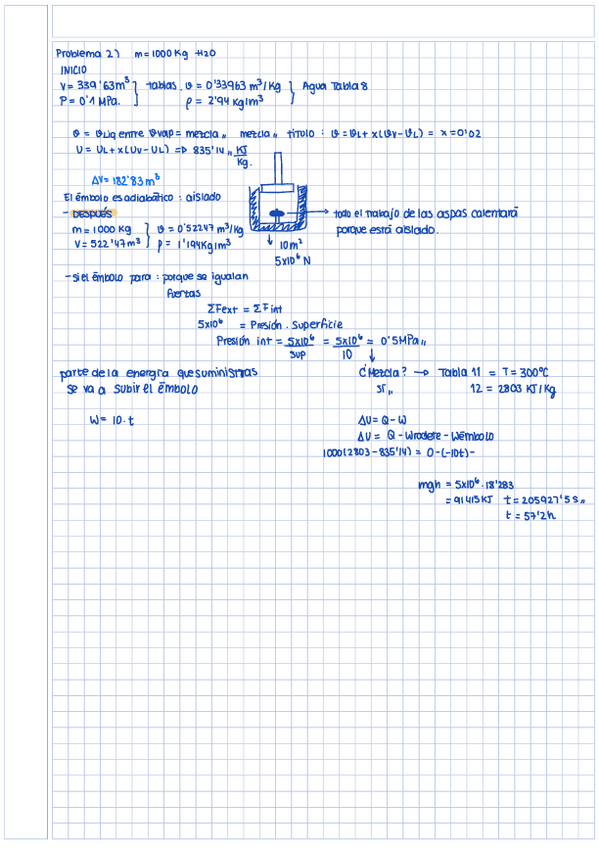 Problema 2) m=1000 Kg H2O
INICIO
V= 339'63m³ } tablas. ϑ = 0'33963 m³/Kg } Agua Tabla 8
P= 0'1 MPa. ρ = 2'94 Kg/m³
ϑ = ϑLiq entre ϑvap = mezcla,, mezcla,, título : ϑ=ϑL+x(ϑv-ϑL) = x=0'02
U= UL+x(Uv-UL) => 835'14,, KJ/Kg.
ΔV= 182'83 m³
El émbolo es adiabático : aislado
- DESPUÉS
m= 1000 Kg } ϑ= 0'52247 m³/Kg
V= 522'47m³ } ρ= 1'194Kg/m³
→ todo el trabajo de las aspas calentará
porque está aislado.
↓ 10m²
5x10⁶ N
- si el émbolo para : porque se igualan
fuertas
ΣFext = ΣFint
5x10⁶ = Presión . Superficie
Presión int = 5x10⁶/sup = 5x10⁶/10 = 0'5MPa,,
parte de la energía que suministras
se va a subir el émbolo
¿Mezcla? → Tabla 11 = T= 300°C
sí,, 12 = 2803 KJ/Kg
W= 10·t
ΔU= Q-W
ΔU= Q-Wrodete-Wémbolo
1000(2803-835'14) = 0-(-10t)-
mgh = 5x10⁶·18'283
= 91415KJ t= 205927'5 s,,
t= 57'2h